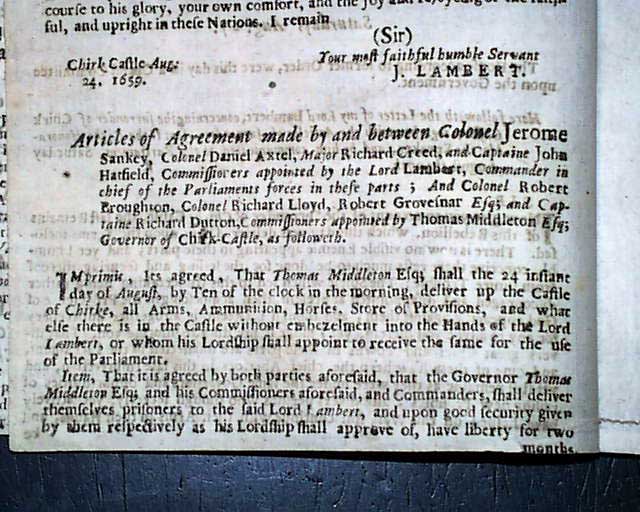 course to his glory, your own comfort, and the joy
ful, and upright in these Nations. I remain
(Sir)
Chirk Castle Aug: Your most faithful humble Servant
24. 1659. J. LAMBERT.
Articles of Agreement made by and between Colonel Jerome
Sankey, Colonel Daniel Axtel, Major Richard Creed, and Captaine John
Hatfield, Commissioners appointed by the Lord Lambert, Commander in
chief of the Parliaments forces in these parts ; And Colonel Robert
Broughton, Colonel Richard Lloyd, Robert Grovesnar Esq; and Cap-
taine Richard Dutton, Commissioners appointed by Thomas Middleton Esq;
Governor of Chirk-Castle, as followeth.
IMprimis, Its agreed, That Thomas Middleton Esq; shall the 24 instant
day of August, by Ten of the clock in the morning, deliver up the Castle
of Chirke, all Arms, Ammunition, Horses, Store of Provisions, and what
else there is in the Castle without embezelment into the Hands of the Lord
Lambert, or whom his Lordship shall appoint to receive the same for the use
of the Parliament.
Item, That it is agreed by both parties aforesaid, that the Governor Thomas
Middleton Esq; and his Commissioners aforesaid, and Commanders, shall deliver
themselves prisoners to the said Lord Lambert, and upon good security given
by them respectively as his Lordship shall approve of, have liberty for two
months